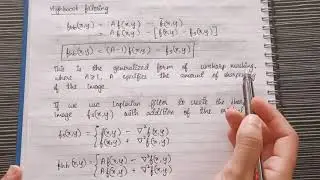 Highboost filtering
fhb(x,y) = A f(x,y) - f(x,y)
= A f(x,y) - [f(x,y) fs(x,y)]
fhb(x,y) = (A-1) f(x,y) - fs(x,y)
This is the generalized form of unsharp masking,
where A≥1, A specifies the amount of sharpening
of the image
If we use Laplacian filter to create the sharp
image fs(x,y) with addition of the
fs(x,y) = { f(x,y) - ∇²f(x,y)
f(x,y) + ∇²f(x,y)
fhb(x,y) = { A f(x,y) - ∇²f(x,y)
A f(x,y) + ∇²f(x,y)